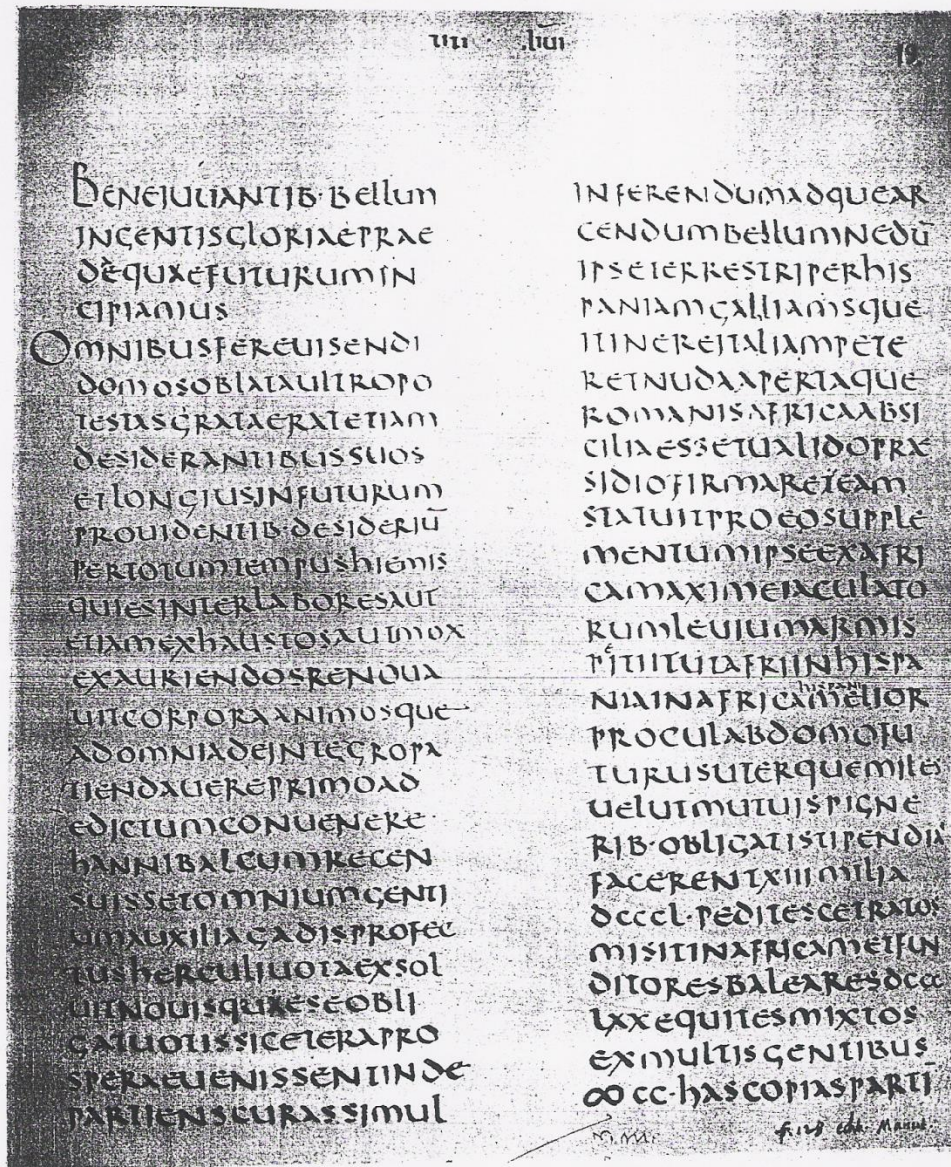 IIII · LIUI
19
BENEIUUANTIB·BELLUM
INGENTISGLORIAEPRAE
DEQUAEFUTURUMIN
CIPIAMUS
OMNIBUSFEREUISENDI
DOMOSOBLATAULTROPO
TESTASGRATAERATETIAM
DESIDERANTIBUSSUOS
ETLONGIUSINFUTURUM
PROUIDENTIB·DESIDERIŪ
PERTOTUMTEMPUSHIEMIS
QUIESINTERLABORESAUT
ETIAMEXHAUSTOSAUTMOX
EXAURIENDOSRENOUA
UITCORPORAANIMOSQUE
ADOMNIADEINTEGROPA
TIENDAUEREPRIMOAD
EDICTUMCONUENERE·
HANNIBALCUMRECEN
SUISSETOMNIUMGENTI
UMAUXILIAGADISPROFEC
TUSHERCULIUOTAEXSOL
UITNOUISQUAESEOBLI
GATUOTISSICETERAPRO
SPERAEUENISSENTINDE
PARTIENSCURASSIMUL
INFERENDUMADQUEAR
CENDUMBELLUMNEDŪ
IPSETERRESTRIPERHIS
PANIAMGALLIAMSQUE
ITINEREITALIAMPETE
RETNUDAAPERTAQUE
ROMANISAFRICAABSI
CILIAESSETUALIDOPRAE
SIDIOFIRMARETEAM
STATUITPROEOSUPPLE
MENTUMIPSEEXAFRI
CAMAXIMEIACULATO
RUMLEUIUMARMIS
PETIITUTAFRIINHISPA
NIAINAFRICAMELIOR
PROCULABDOMOFU
TURUSUTERQUEMILES
UELUTMUTUISPIGNE
RIB·OBLIGATISTIPENDIA
FACERENTXIIIMILIA
DCCCL·PEDITESCETRATOS
MISITINAFRICAMETFUN
DITORESBALEARESDCCC
LXXEQUITESMIXTOS
EXMULTISGENTIBUS
∞CC·HASCOPIASPARTĪ